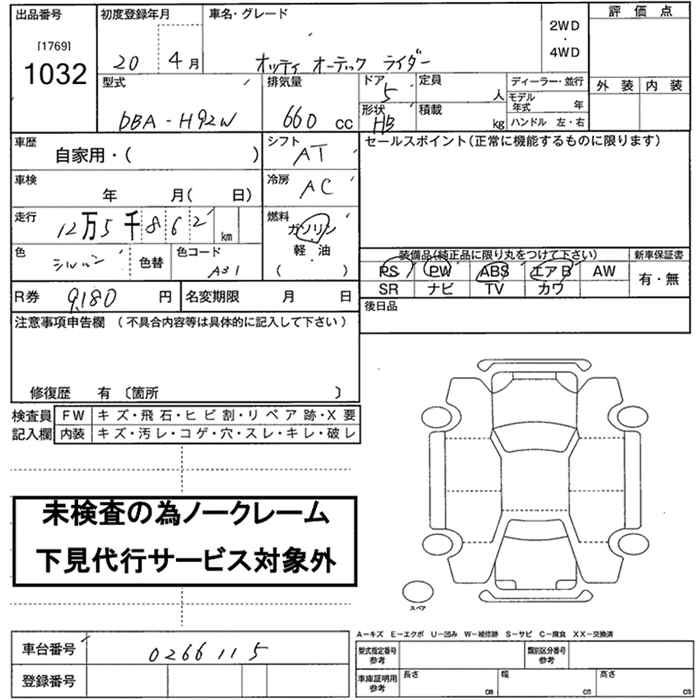 出品番号 初度登録年月 車名・グレード 2WD 評価点
[1769] ・
1032 20 4月 オッティ オーテック ライダー 4WD
型式 排気量 ドア 5 定員 人 ディーラー・並行 外装 内装
モデル年式 年
DBA-H92W 660 cc 形状 HB 積載 kg ハンドル 左・右
車歴 自家用・( ) シフト AT セールスポイント(正常に機能するものに限ります)
車検 年 月( 日) 冷房 AC
走行 12万5千862 km 燃料 ガソリン
軽・油
( )
色 色替 色コード A31
装備品(純正品に限り丸をつけて下さい) 新車保証書
PS PW ABS エアB AW 有・無
SR ナビ TV カワ
R券 9,180 円 名変期限 月 日 後日品
注意事項申告欄 (不具合内容等は具体的に記入して下さい)
修復歴 有 〔箇所 〕
検査員 FW キズ・飛石・ヒビ割・リペア跡・X要
記入欄 内装 キズ・汚レ・コゲ・穴・スレ・キレ・破レ
未検査の為ノークレーム
下見代行サービス対象外
スペア
A-キズ E-エクボ U-凹み W-補修跡 S-サビ C-腐食 XX-交換済
車台番号 0266115 型式指定番号 参考 類別区分番号 参考
登録番号 車庫証明用 参考 長さ cm 幅 cm 高さ cm